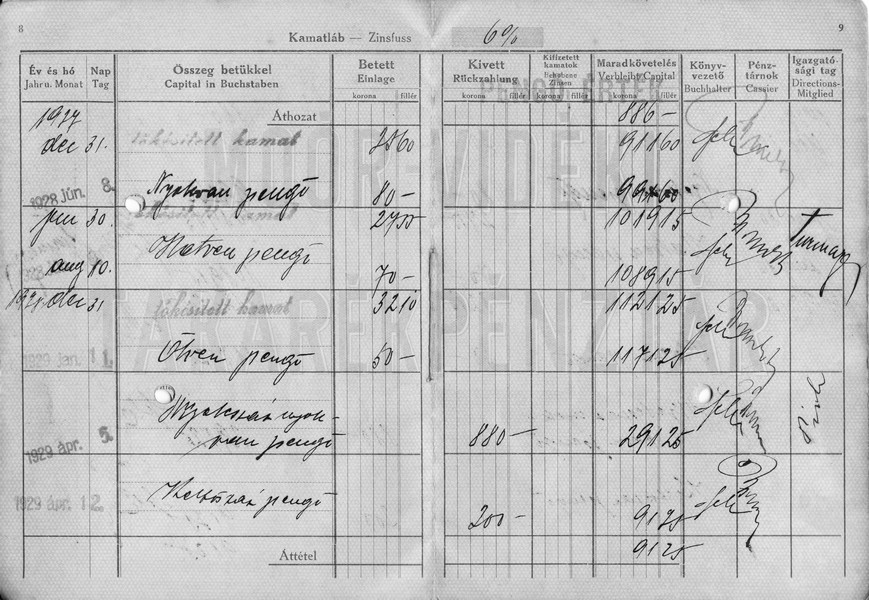 8
Kamatláb — Zinsfuss
6%
9
Év és hó Nap Összeg betükkel Betett Kivett Kifizetett kamatok Maradkövetelés Könyvvezető Pénztárnok Igazgatósági tag
Jahr u. Monat Tag Capital in Buchstaben Einlage Rückzahlung Behobene Zinsen Verbleibt Capital Buchhalter Cassier Directions-Mitglied
korona fillér korona fillér korona fillér korona fillér
PENGŐ ÉRTÉK
Áthozat 886 —
1927
dec 31. tőkésített kamat 25 60 911 60
1928 Jún. 8. Nyolcvan pengő 80 — 991 60
jun 30. tőkésített kamat 27 55 1019 15
aug 10. Hetven pengő 70 — 1089 15
1928 dec 31 tőkésített kamat 32 10 1121 25
1929 Jan. 11. Ötven pengő 50 — 1171 25
1929 ápr. 5. Nyolcszáz nyolc-
van pengő 880 — 291 25
1929 ápr. 12. Kettőszáz pengő 200 — 91 25
Áttétel 91 25
TAKARÉKPÉNZTÁR